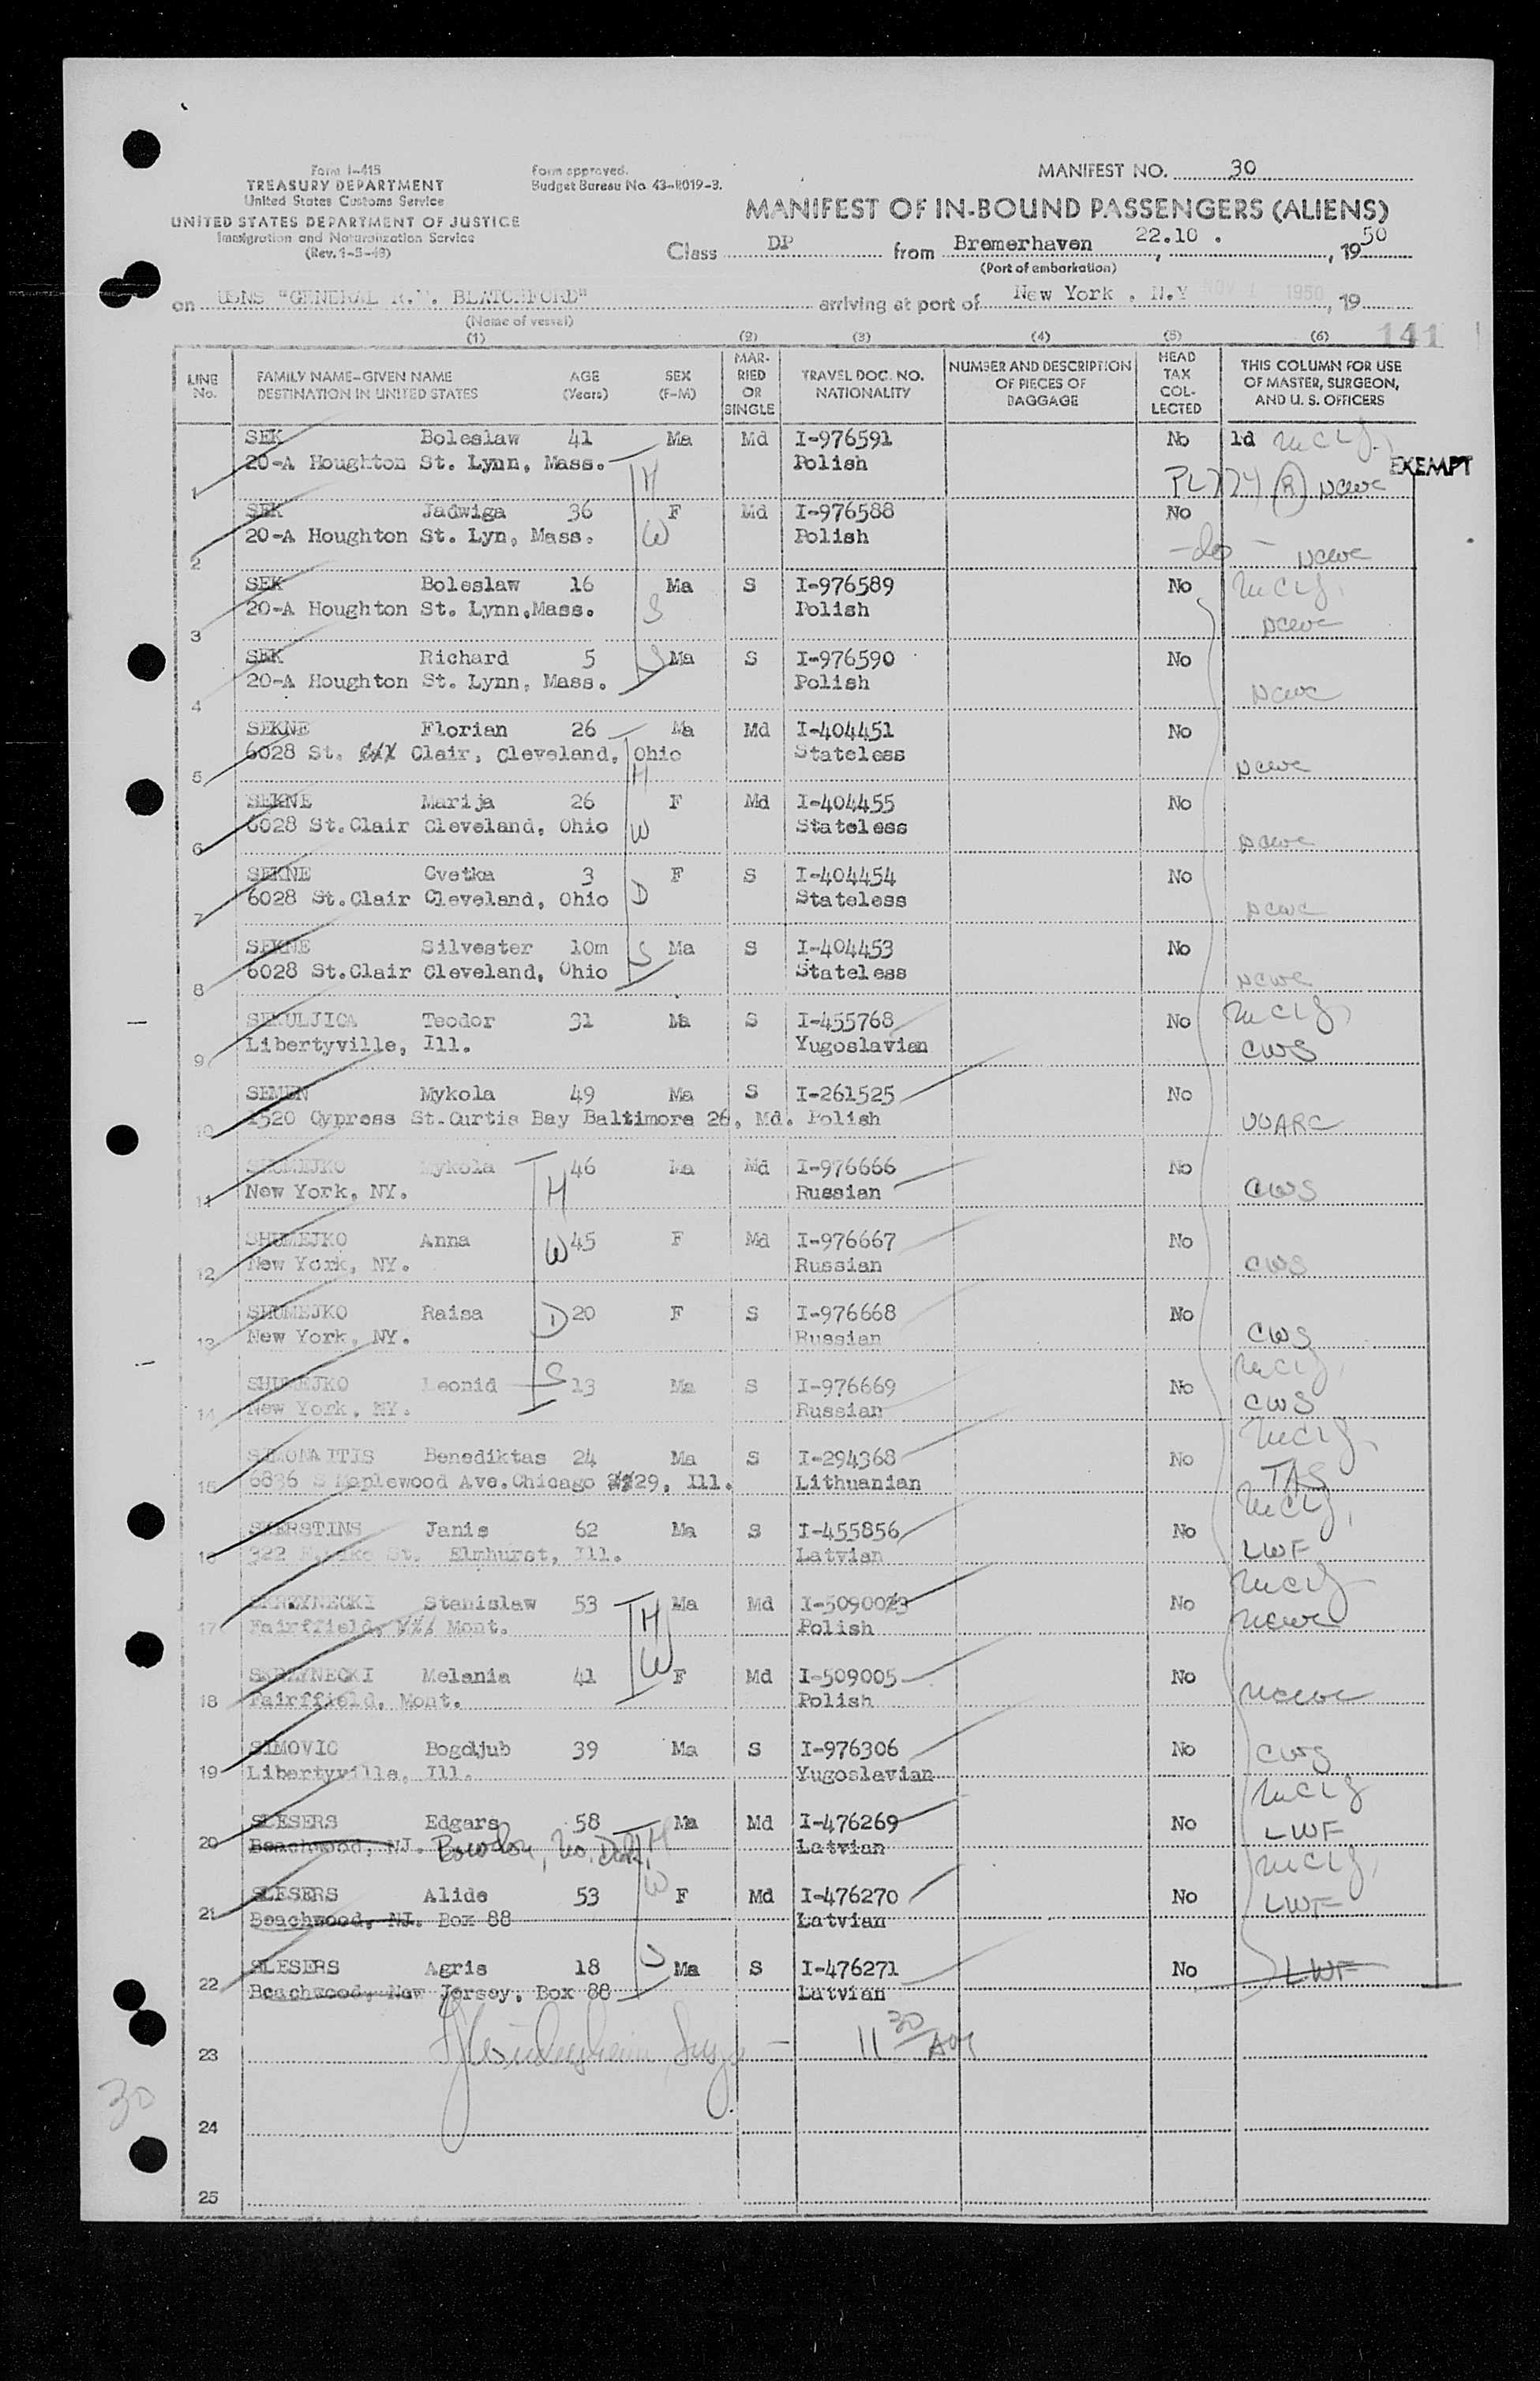 Form I-415
TREASURY DEPARTMENT
United States Customs Service
UNITED STATES DEPARTMENT OF JUSTICE
Immigration and Naturalization Service
(Rev. 1-5-49)
Form approved.
Budget Bureau No. 43-R019-3.
MANIFEST NO. 30
MANIFEST OF IN-BOUND PASSENGERS (ALIENS)
Class DP from Bremerhaven, 22.10., 1950
(Port of embarkation)
on USNS "GENERAL R.M. BLATCHFORD" arriving at port of New York, N.Y NOV 1 1950, 19
(Name of vessel)
141
(1) (2) (3) (4) (5) (6)
LINE No.
FAMILY NAME-GIVEN NAME DESTINATION IN UNITED STATES
AGE (Years)
SEX (F-M)
MARRIED OR SINGLE
TRAVEL DOC. NO. NATIONALITY
NUMBER AND DESCRIPTION OF PIECES OF BAGGAGE
HEAD TAX COLLECTED
THIS COLUMN FOR USE OF MASTER, SURGEON, AND U. S. OFFICERS
SEK Boleslaw 41 Ma Md I-976591 No 1d
1 20-A Houghton St. Lynn, Mass. H Polish PL 774 (R) NCWC
EXEMPT
SEK Jadwiga 36 F Md I-976588 No
2 20-A Houghton St. Lyn, Mass. W Polish -do- NCWC
SEK Boleslaw 16 Ma S I-976589 No
3 20-A Houghton St. Lynn,Mass. S Polish NCWC
SEK Richard 5 Ma S I-976590 No
4 20-A Houghton St. Lynn, Mass. S Polish NCWC
SEKNE Florian 26 Ma Md I-404451 No
5 6028 St. Clair, Cleveland, Ohio H Stateless NCWC
SEKNE Marija 26 F Md I-404455 No
6 6028 St.Clair Cleveland, Ohio W Stateless NCWC
SEKNE Cvetka 3 F S I-404454 No
7 6028 St.Clair Cleveland, Ohio D Stateless NCWC
SEKNE Silvester 10m Ma S I-404453 No
8 6028 St.Clair Cleveland, Ohio S Stateless NCWC
SEKULJICA Teodor 31 Ma S I-455768 No
9 Libertyville, Ill. Yugoslavian CWS
SEMEN Mykola 49 Ma S I-261525 No
10 1520 Cypress St.Curtis Bay Baltimore 26, Md. Polish UUARC
SHUMEJKO Mykola 46 Ma Md I-976666 No
11 New York, NY. H Russian CWS
SHUMEJKO Anna W 45 F Md I-976667 No
12 New York, NY. Russian CWS
SHUMEJKO Raisa D 20 F S I-976668 No
13 New York, NY. Russian CWS
SHUMEJKO Leonid S 13 Ma S I-976669 No
14 New York, NY. Russian CWS
SIMONAITIS Benediktas 24 Ma S I-294368 No
15 6836 S Maplewood Ave.Chicago 29, Ill. Lithuanian
SKERSTINS Janis 62 Ma S I-455856 No
16 322 St. Elmhurst, Ill. Latvian LWF
SKRZYNECKI Stanislaw 53 H Ma Md I-509003 No
17 Fairffield, Mont. Polish NCWC
SKRZYNECKI Melania 41 W F Md I-509005 No
18 Fairffield, Mont. Polish NCWC
SIMOVIC Bogdjub 39 Ma S I-976306 No CWS
19 Libertyville, Ill. Yugoslavian
SLESERS Edgars 58 Ma Md I-476269 No
20 Beachwood, NJ. Bowdon, No. Dak. H Latvian LWF
SLESERS Alide 53 W F Md I-476270 No LWF
21 Beachwood, NJ. Box 88 Latvian
SLESERS Agris 18 S Ma S I-476271 No LWF
22 Beachwood, New Jersey, Box 88 Latvian
23 11 30
24
30
25